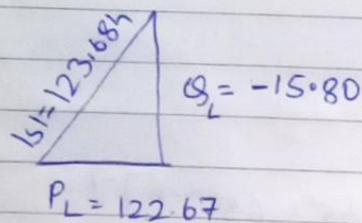 |S| = 123.684
Q_L = -15.80
P_L = 122.67